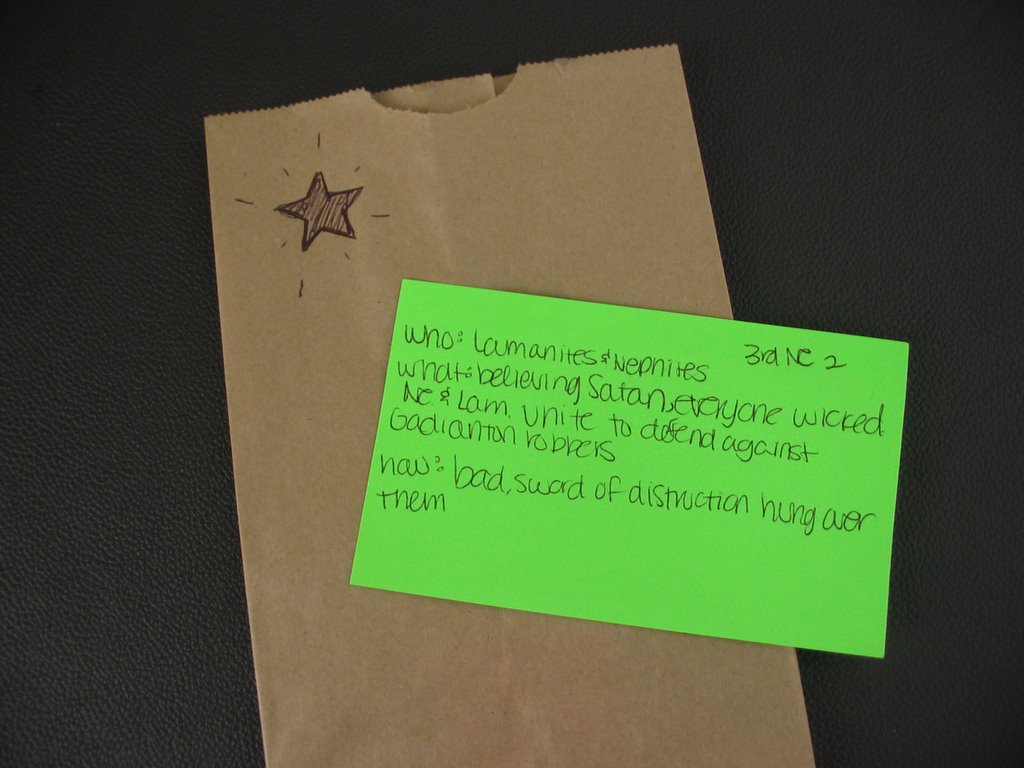 3rd NE 2
who: Lamanites & Nephites
what: believing Satan, everyone wicked
NE & Lam. unite to defend against
Gadianton robbers
how: bad, sword of distruction hung over
them